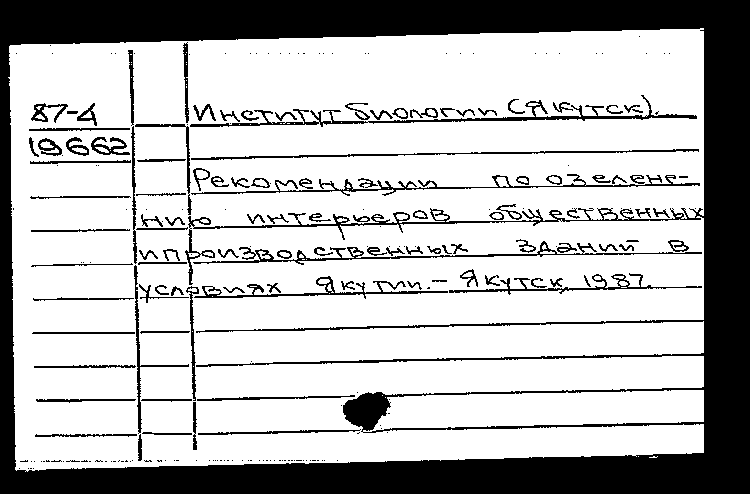 87-4 Институт биологии (Якутск).
19662
Рекомендации по озелене-
нию интерьеров общественных
и производственных зданий в
условиях Якутии.- Якутск, 1987.